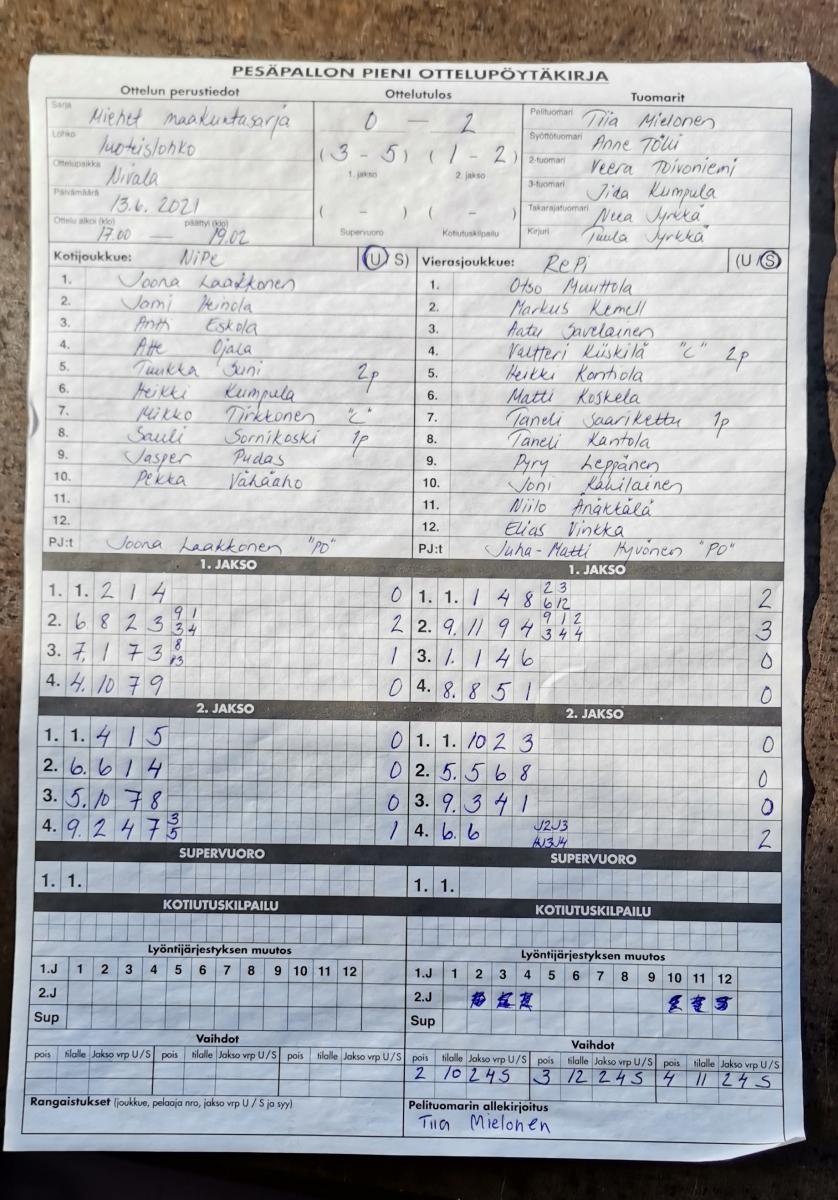 PESÄPALLON PIENI OTTELUPÖYTÄKIRJA
Ottelun perustiedot Ottelutulos Tuomarit
Sarja Miehet maakuntasarja
Lohko luoteislohko
Ottelupaikka Nivala
Päivämäärä 13.6. 2021
Ottelu alkoi (klo) päättyi (klo)
17.00 — 19.02
0 — 2
(3 - 5) (1 - 2)
1. jakso 2. jakso
( - ) ( - )
Supervuoro Kotiutuskilpailu
Pelituomari Tiia Mielonen
Syöttötuomari Anne Tölli
2-tuomari Veera Toivoniemi
3-tuomari Jida Kumpula
Takarajatuomari Neea Jyrkkä
Kirjuri Tuula Jyrkkä
Kotijoukkue: NiPe (U S)
1. Joona Laakkonen
2. Jomi Heinola
3. Antti Eskola
4. Atte Ojala
5. Tuukka Suni 2p
6. Heikki Kumpula
7. Mikko Tirkkonen "C"
8. Sauli Sornikoski 1p
9. Jasper Pudas
10. Pekka Vähäaho
11.
12.
PJ:t Joona Laakkonen "PO"
Vierasjoukkue: RePi (U / S)
1. Otso Muuttola
2. Markus Kemell
3. Aatu Savelainen
4. Valtteri Kiiskilä "C" 2p
5. Heikki Kontiola
6. Matti Koskela
7. Taneli Saarikettu 1p
8. Taneli Kantola
9. Pyry Leppänen
10. Joni Kauilainen
11. Niilo Änäkkälä
12. Elias Vinkka
PJ:t Juha-Matti Hyvönen "PO"
1. JAKSO
1. 1. 2 1 4 0
2. 6 8 2 3 9 1 2
3 4
3. 7. 1 7 3 8 1
13
4. 4. 10 7 9 0
1. JAKSO
1. 1. 1 4 8 2 3 2
6 12
2. 9. 11 9 4 9 1 2 3
3 4 4
3. 1. 1 4 6 0
4. 8. 8 5 1 0
2. JAKSO
1. 1. 4 1 5 0
2. 6. 6 1 4 0
3. 5. 10 7 8 0
4. 9. 2 4 7 3 1
5
2. JAKSO
1. 1. 10 2 3 0
2. 5. 5 6 8 0
3. 9. 3 4 1 0
4. 6. 6 J2J3 2
SUPERVUORO
1. 1.
SUPERVUORO
1. 1.
KOTIUTUSKILPAILU
KOTIUTUSKILPAILU
Lyöntijärjestyksen muutos
1.J 1 2 3 4 5 6 7 8 9 10 11 12
2.J
Sup
Lyöntijärjestyksen muutos
1.J 1 2 3 4 5 6 7 8 9 10 11 12
2.J
Sup
Vaihdot
pois tilalle Jakso vrp U/S pois tilalle Jakso vrp U/S pois tilalle Jakso vrp U/S
Vaihdot
pois tilalle Jakso vrp U/S pois tilalle Jakso vrp U/S pois tilalle Jakso vrp U/S
2 10 2 4 S 3 12 2 4 S 4 11 2 4 S
Rangaistukset (joukkue, pelaaja nro, jakso vrp U / S ja syy)
Pelituomarin allekirjoitus
Tiia Mielonen